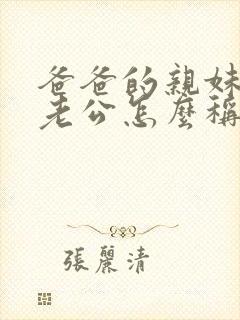 爸爸的親妹
老公怎麼稱
張麗清